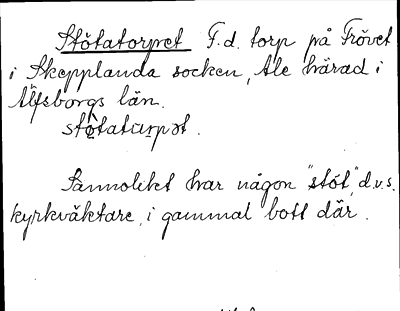 Stötatorpet F.d. torp på Frövet
i Skepplanda socken, Ale härad i
Älfsborgs län.
stø̀taturpət.
Sannolikt har någon "stöt", d.v.s.
kyrkväktare, i gammal bott där.